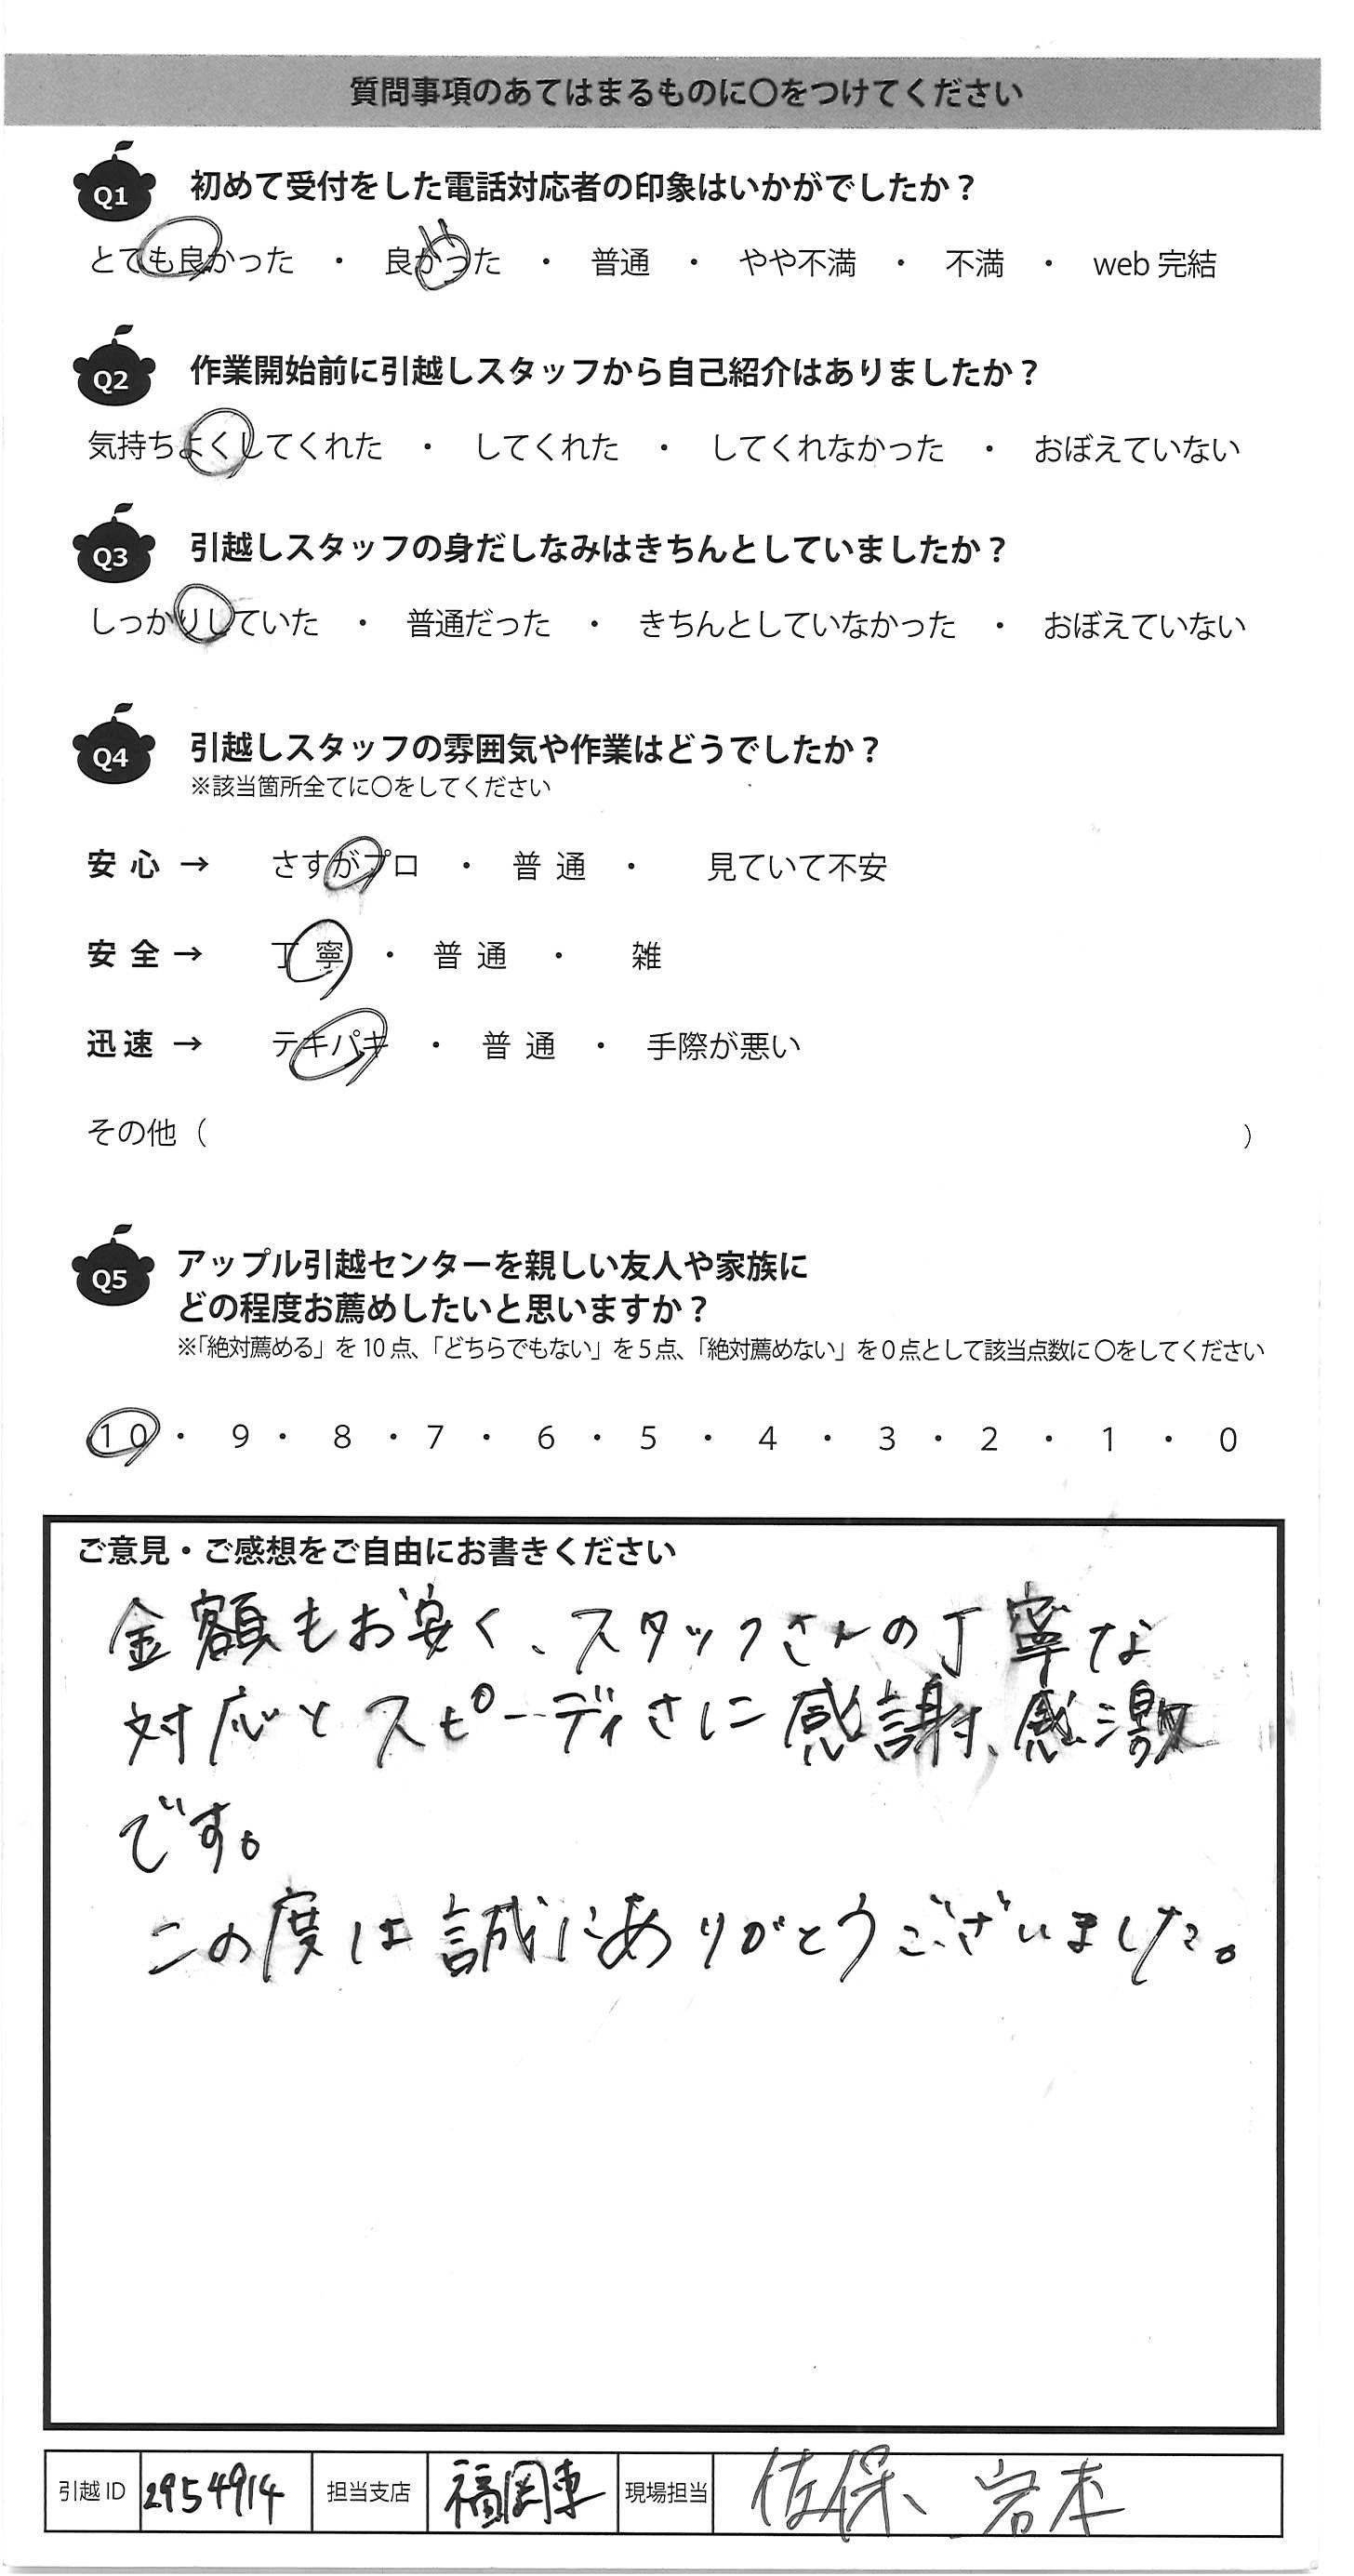 質問事項のあてはまるものに〇をつけてください
Q1 初めて受付をした電話対応者の印象はいかがでしたか？
とても良かった ・ 良かった ・ 普通 ・ やや不満 ・ 不満 ・ web 完結
Q2 作業開始前に引越しスタッフから自己紹介はありましたか？
気持ちよくしてくれた ・ してくれた ・ してくれなかった ・ おぼえていない
Q3 引越しスタッフの身だしなみはきちんとしていましたか？
しっかりしていた ・ 普通だった ・ きちんとしていなかった ・ おぼえていない
Q4 引越しスタッフの雰囲気や作業はどうでしたか？
※該当箇所全てに〇をしてください
安心 → さすがプロ ・ 普通 ・ 見ていて不安
安全 → 丁寧 ・ 普通 ・ 雑
迅速 → テキパキ ・ 普通 ・ 手際が悪い
その他（ ）
Q5 アップル引越センターを親しい友人や家族に
どの程度お薦めしたいと思いますか？
※「絶対薦める」を10点、「どちらでもない」を5点、「絶対薦めない」を0点として該当点数に〇をしてください
10 ・ 9 ・ 8 ・ 7 ・ 6 ・ 5 ・ 4 ・ 3 ・ 2 ・ 1 ・ 0
ご意見・ご感想をご自由にお書きください
金額もお安く、スタッフさんの丁寧な
対応とスピーディさに感謝、感激
です。
この度は誠にありがとうございました。
引越ID 2954914 担当支店 福岡東 現場担当 佐保、岩本